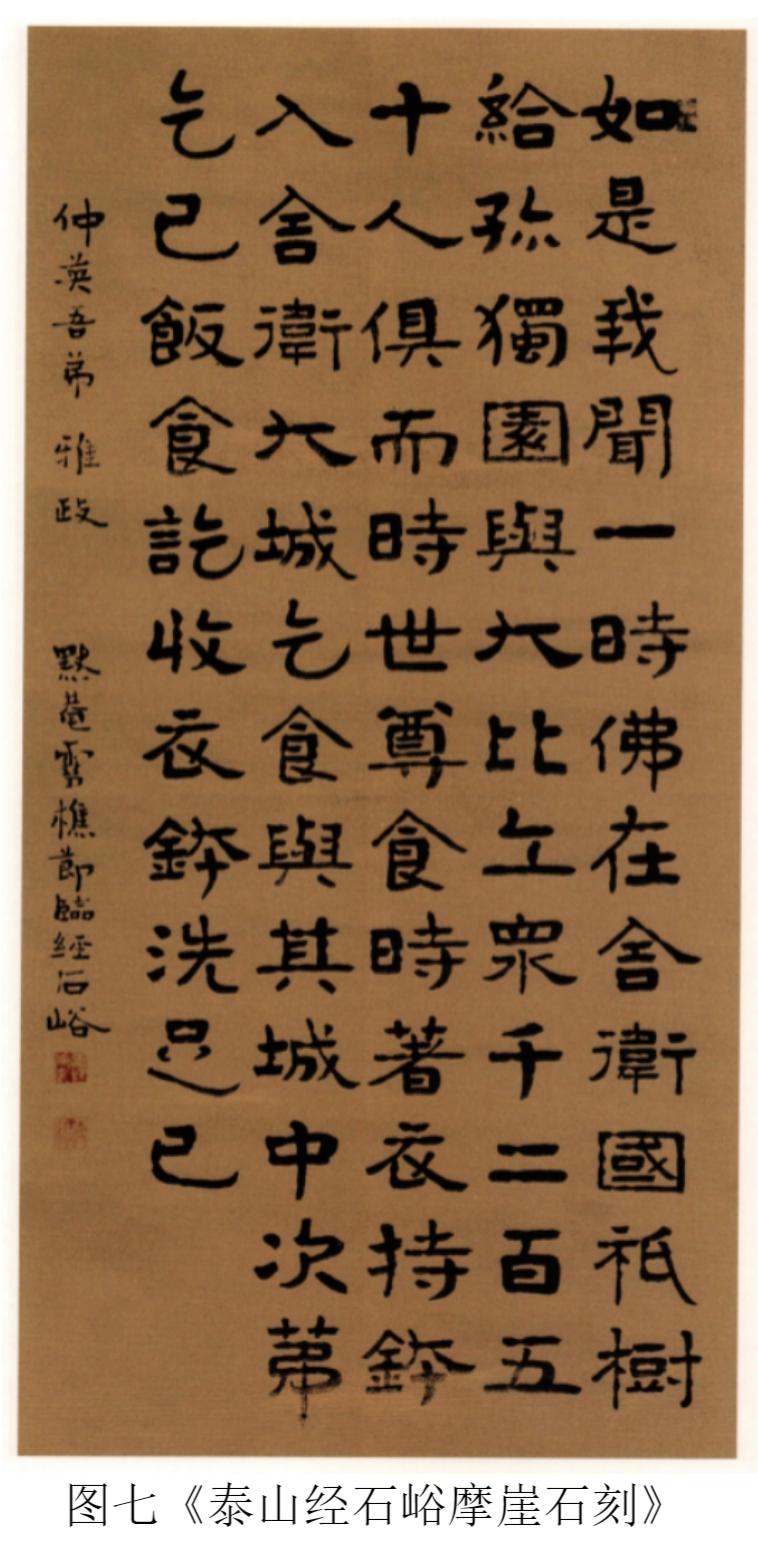 如是我聞一時佛在舍衛國祇樹
給孤獨園與大比丘眾千二百五
十人俱而時世尊食時著衣持鉢
入舍衛大城乞食與其城中次苐
乞已飯食訖收衣鉢洗足已
仲英吾弟 雅政 默菴雪樵節臨經石峪
图七《泰山经石峪摩崖石刻》